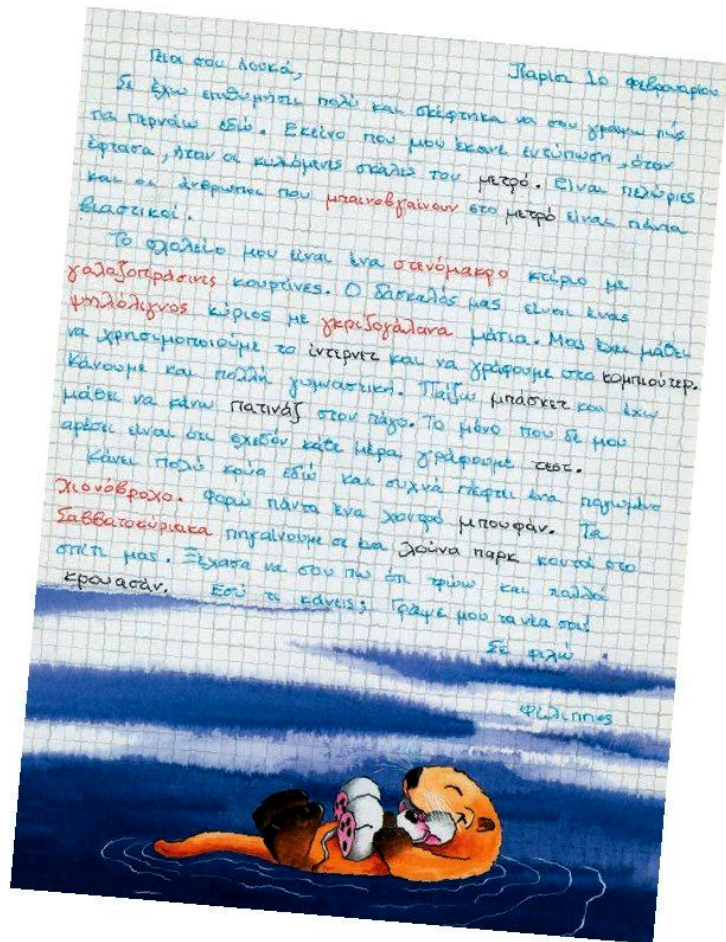 Γεια σου Λουκά, Παρίσι 10 Φεβρουαρίου
Σε έχω επιθυμήσει πολύ και σκέφτηκα να σου γράψω πώς
τα περνάω εδώ. Εκείνο που μου έκανε εντύπωση, όταν
έφτασα, ήταν οι κυλιόμενες σκάλες του μετρό. Είναι πελώριες
και οι άνθρωποι που μπαινοβγαίνουν στο μετρό είναι πάντα
βιαστικοί.
Το σχολείο μου είναι ένα στενόμακρο κτίριο με
γαλαζοπράσινες κουρτίνες. Ο δάσκαλός μας είναι ένας
ψηλόλιγνος κύριος με γκριζογάλανα μάτια. Μας έχει μάθει
να χρησιμοποιούμε το ίντερνετ και να γράφουμε στο κομπιούτερ.
Κάνουμε και πολλή γυμναστική. Παίζω μπάσκετ και έχω
μάθει να κάνω πατινάζ στον πάγο. Το μόνο που δε μου
αρέσει είναι ότι σχεδόν κάθε μέρα γράφουμε τεστ.
Κάνει πολύ κρύο εδώ και συχνά πέφτει ένα παγωμένο
χιονόβροχο. Φορώ πάντα ένα χοντρό μπουφάν. Τα
Σαββατοκύριακα πηγαίνουμε σε ένα λούνα παρκ κοντά στο
σπίτι μας. Ξέχασα να σου πω ότι τρώω και πολλά
κρουασάν. Εσύ τι κάνεις; Γράψε μου τα νέα σου!
Σε φιλώ
Φίλιππος